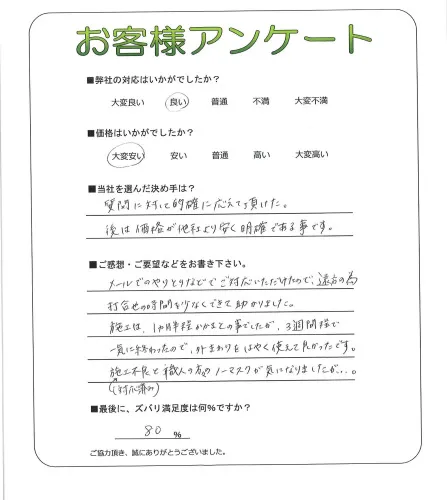 お客様アンケート
■弊社の対応はいかがでしたか?
大変良い 良い 普通 不満 大変不満
■価格はいかがでしたか?
大変安い 安い 普通 高い 大変高い
■当社を選んだ決め手は?
質問に対して的確に応えて頂けた。
後は価格が他社より安く明確である事です。
■ご感想・ご要望などをお書き下さい。
メールでのやりとりなどでご対応いただけたので、遠方の為
打合せの時間を少なくできて助かりました。
施工は、1か月半程かかるとの事でしたが、3週間程で
一気に終わったので、外まわりをはやく使えて良かったです。
施工不良と職人の方のノーマスクが気になりましたが...。
(対応済み)
■最後に、ズバリ満足度は何%ですか?
80 %
ご協力頂き、誠にありがとうございました。